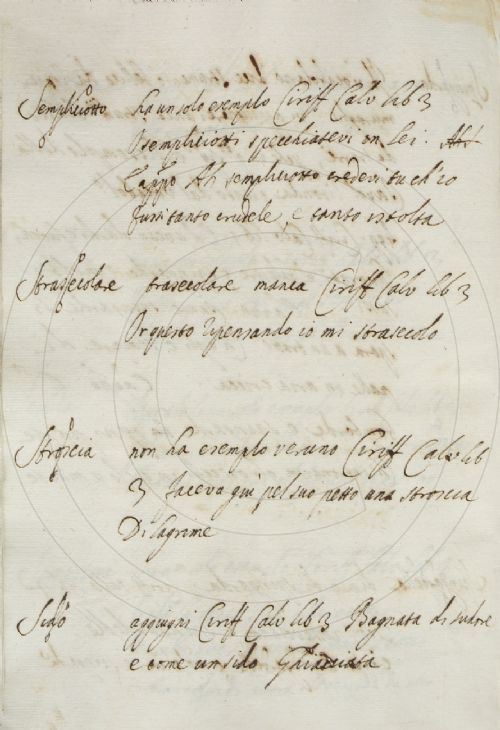 Sempliciotto ha un solo esempio Ciriff Calv lib 3
O sempliciotti specchiatevi in lei.
Cappo Ah sempliciotto credevi tu ch'io
fussi tanto crudele, e tanto stolta
Strasecolare strasecolare manca Ciriff Calv lib 3
Or questo ripensando io mi strasecolo
Stroscia non ha esempio veruno Ciriff Calv lib
3 faceva giù pel suo petto una stroscia
Di lagrime
Sido aggiugni Ciriff Calv lib 3 Bagnata di sudore
e come un sido Ghiacciata